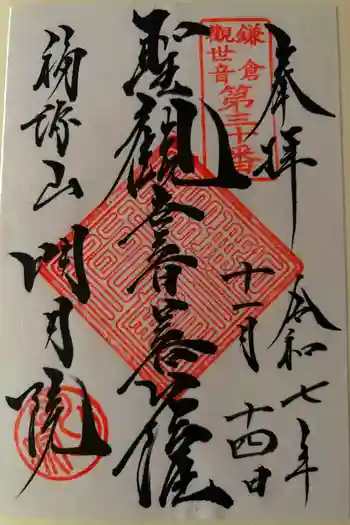 奉拝
令和七年
十一月
十四日
鎌倉
觀世音
第三十番
聖觀世音菩薩
福源山
明月院